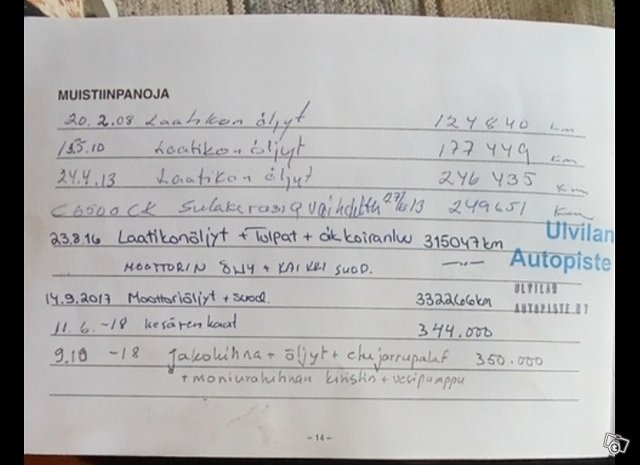 MUISTIINPANOJA
20.2.08 Laatikon öljyt 124840 km
Laatikon öljyt 177449 km
24.4.13 Laatikon öljyt 246435 km
C6500CK Sulakerasia vaihdettu 249651 km
23.8.16 Laatikonöljyt + Tulpat + 315047 km
Ulvilan
Autopiste
MOOTTORIN ÖLJY + KAIKKI SUOD. —"—
ULVILAN
AUTOPISTE OY
14.9.2017 Moottoriöljyt + suod. 332266km
11.6.-18 kesärenkaat 344.000
9.10 -18 Jakohihna + öljyt + etujarrupalat 350.000
+ moniurahihnan kiristin + vesipumppu
- 14 -